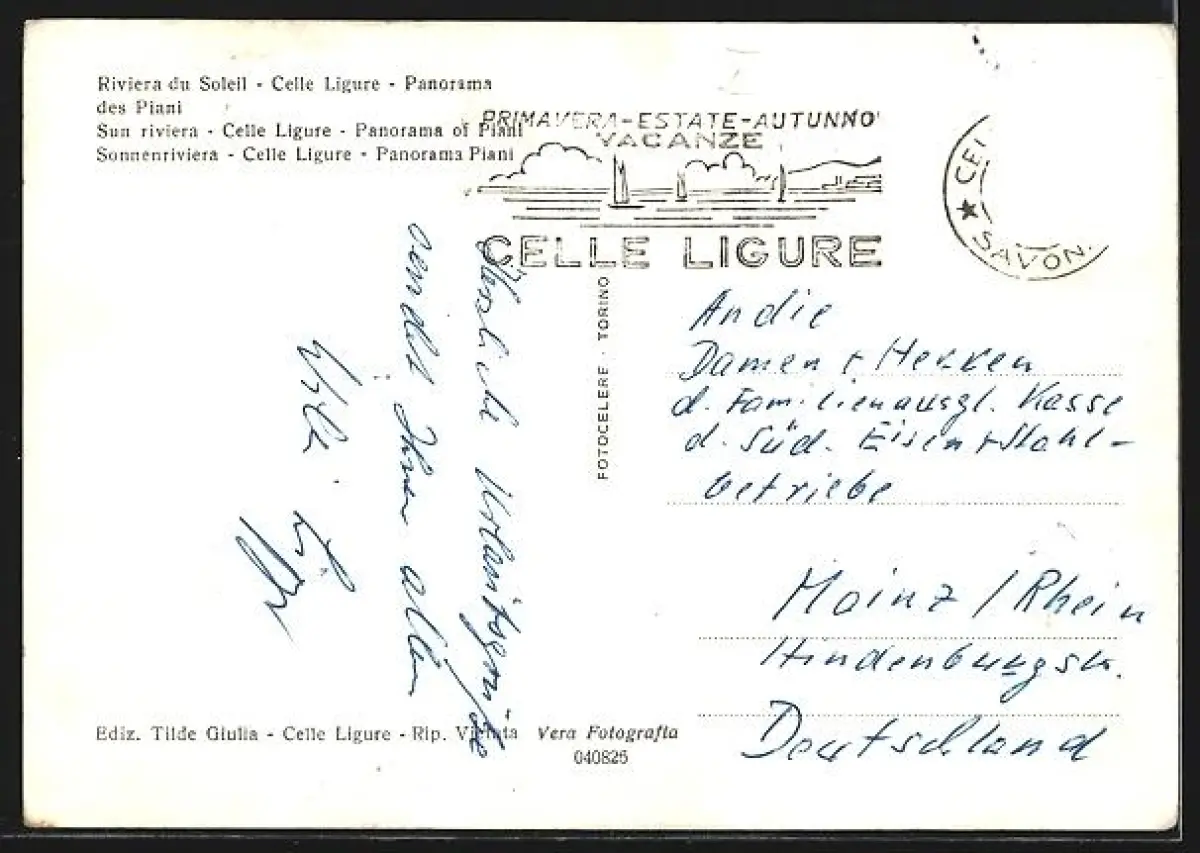 Riviera du Soleil - Celle Ligure - Panorama
des Piani
Sun riviera - Celle Ligure - Panorama of Piani
Sonnenriviera - Celle Ligure - Panorama Piani
PRIMAVERA-ESTATE-AUTUNNO
VACANZE
CELLE LIGURE
SAVON.
FOTOCELERE · TORINO
Herzliche Urlaubsgrüße
sendet Ihnen allen
An die
Damen + Herren
d. Familienausgl. Kasse
d. Süd. Eisen + Stahl-
betriebe
Mainz / Rhein
Hindenburgstr.
Deutschland
Ediz. Tilde Giulia - Celle Ligure - Rip. Vietata
Vera Fotografia
040825